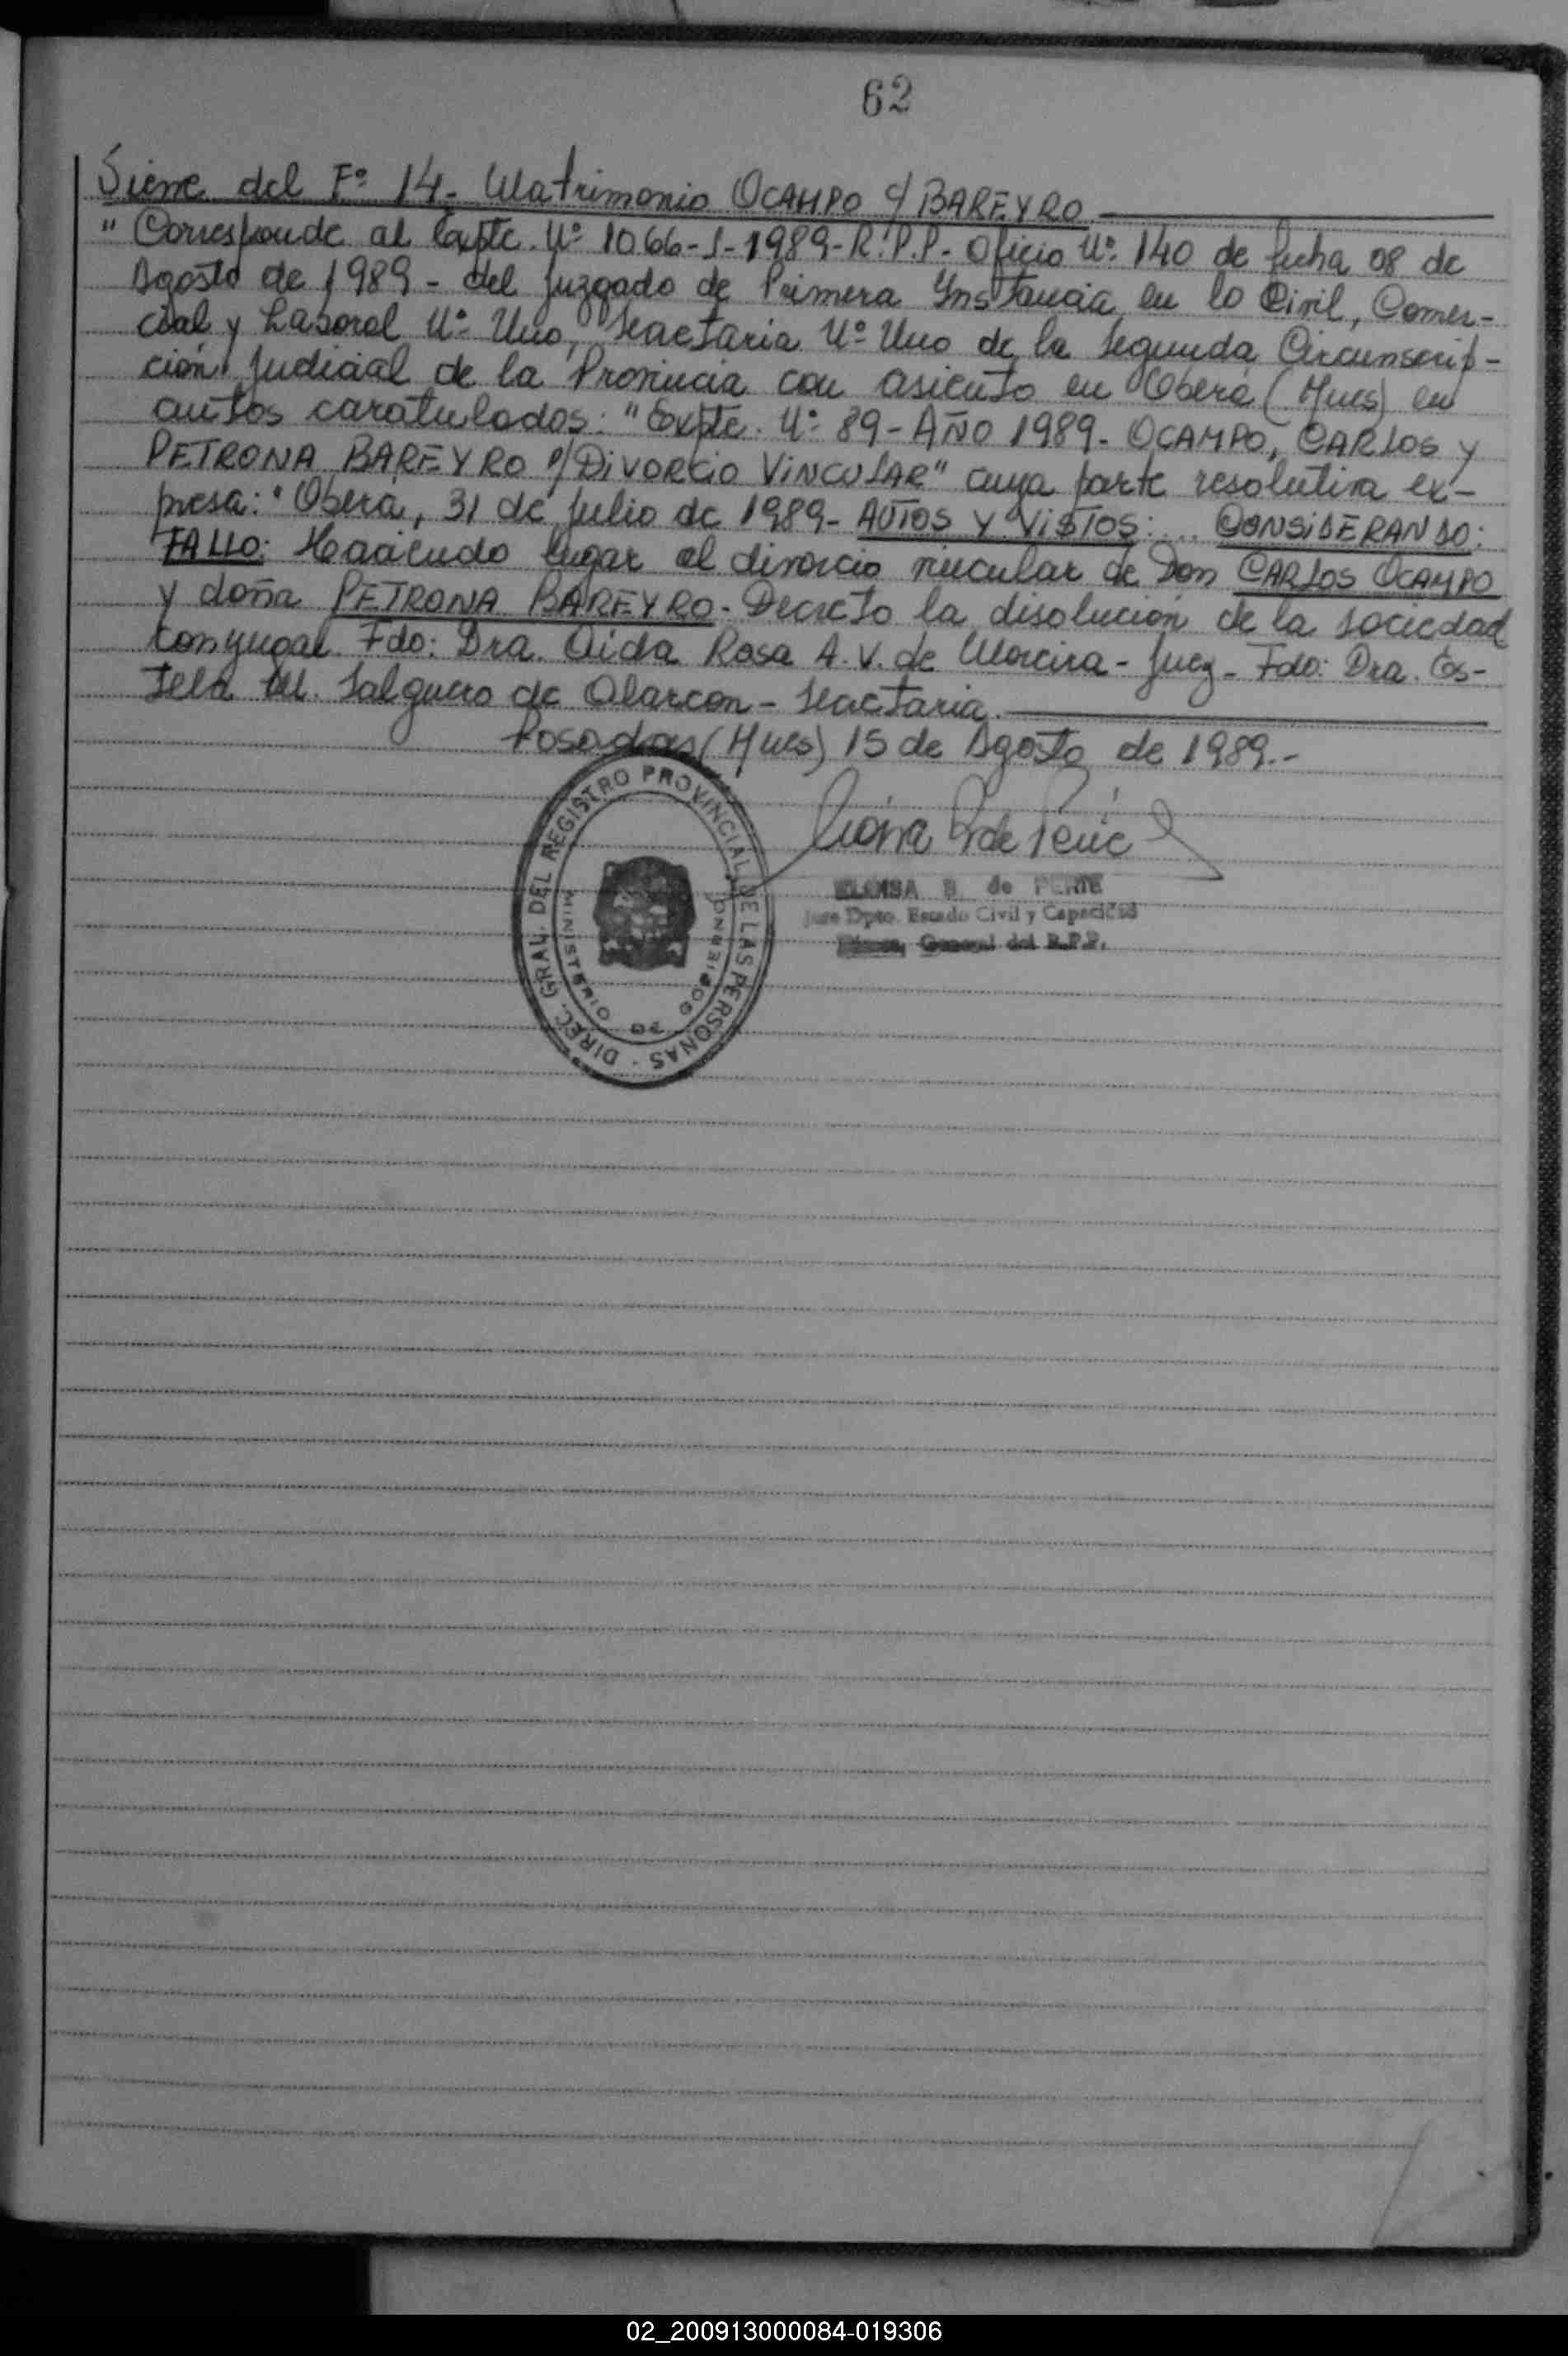 62
Viene del Fº 14- Matrimonio OCAMPO c/ BAREYRO
" Corresponde al Expte. Nº 1066-J-1989-R.P.P.- Oficio Nº 140 de fecha 08 de
Agosto de 1989- del Juzgado de Primera Instancia en lo Civil, Comer-
cial y Laboral Nº Uno, Secretaria Nº Uno de la Segunda Circunscrip-
ción Judicial de la Provincia con asiento en Oberá (Mnes) en
autos caratulados: "Expte. Nº 89- AÑO 1989- OCAMPO, CARLOS y
PETRONA BAREYRO s/ DIVORCIO VINCULAR" cuya parte resolutiva ex-
presa: "Oberá, 31 de julio de 1989- AUTOS Y VISTOS: ... CONSIDERANDO:
FALLO: Haciendo lugar al divorcio vincular de Don CARLOS OCAMPO
y doña PETRONA BAREYRO- Decreto la disolución de la sociedad
conyugal. Fdo: Dra. Aida Rosa A. V. de Moreira- Juez- Fdo: Dra. Es-
tela M. Salguero de Alarcon- Secretaria.
Posadas (Mnes) 15 de Agosto de 1989.-
DIREC. GRAL. DEL REGISTRO PROVINCIAL DE LAS PERSONAS
MINISTERIO DE GOBIERNO
ELOISA B. de
Jefe Dpto. Estado Civil y Capacidad
General del R.P.P.
02_200913000084-019306